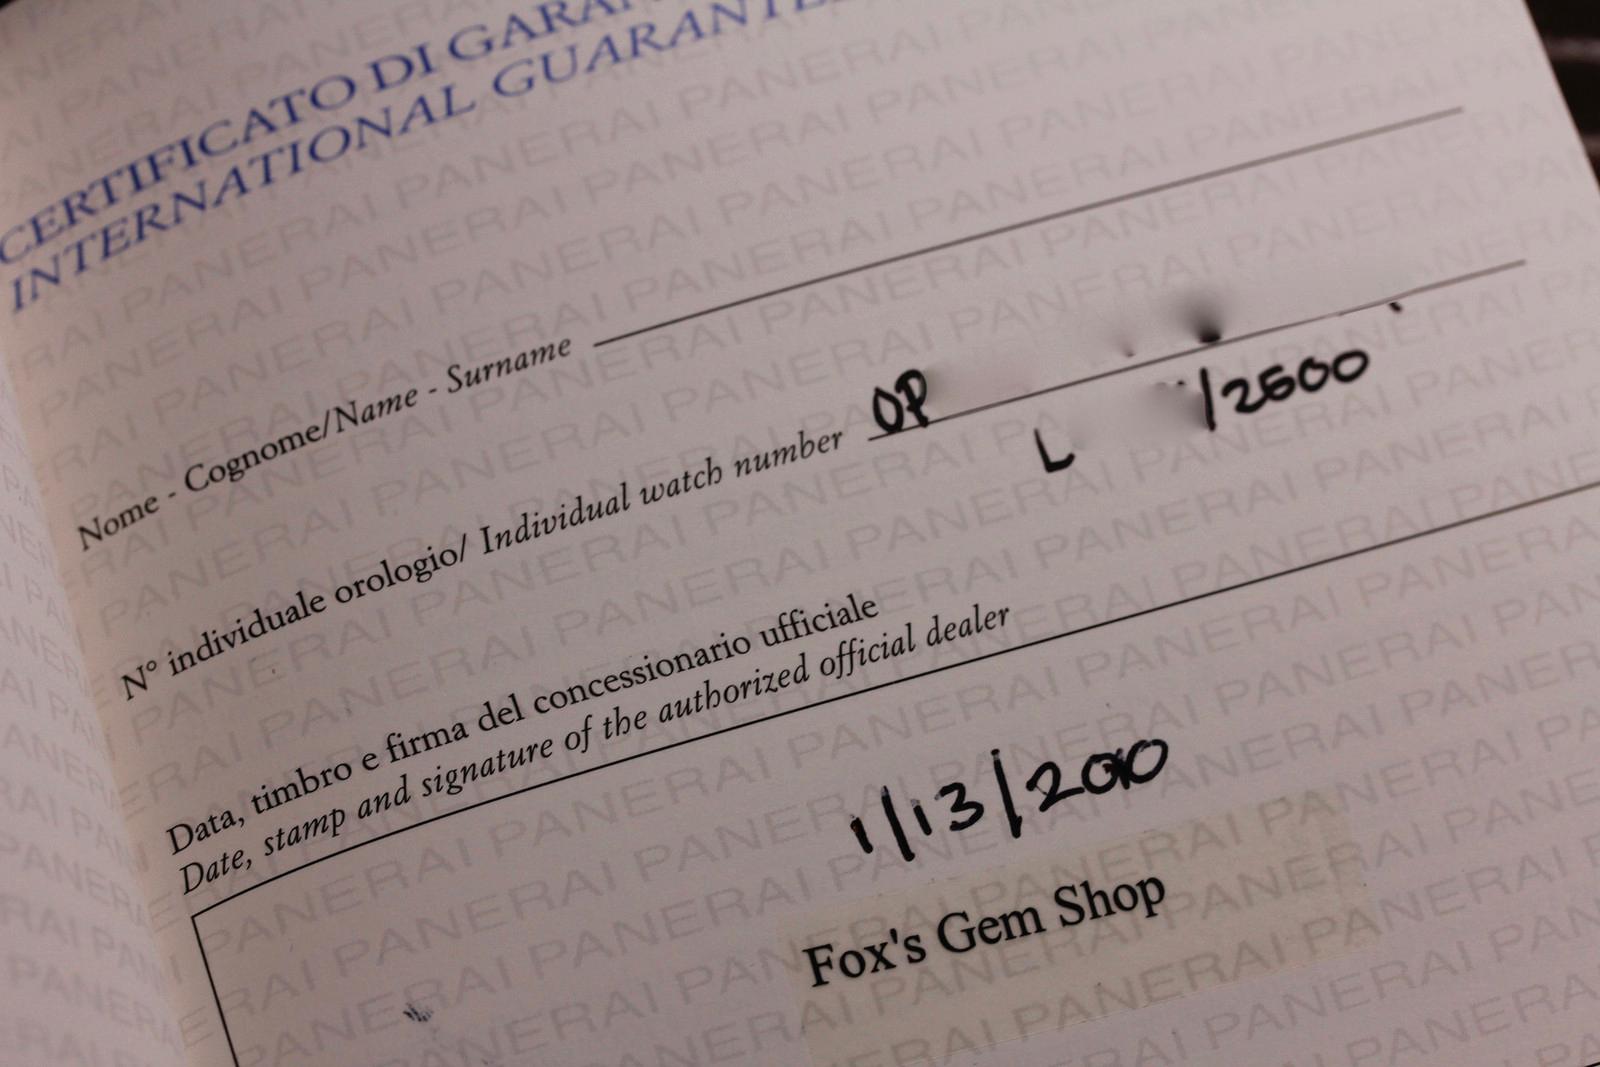 CERTIFICATO DI GARAN
INTERNATIONAL GUARANTE
Nome - Cognome/Name - Surname
N° individuale orologio/ Individual watch number OP
L /2500
Data, timbro e firma del concessionario ufficiale
Date, stamp and signature of the authorized official dealer
1/13/2010
Fox's Gem Shop
PANERAI PANERAI PANERAI PANERAI